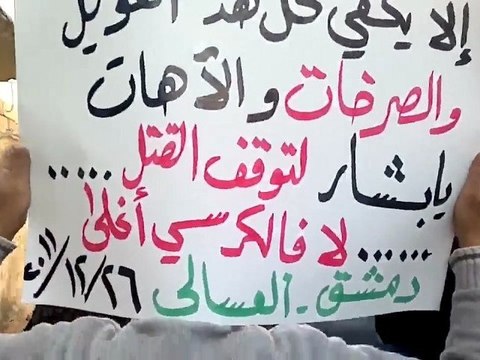 إلا يكفي كل هذا العويل
والصرخات والأهات
يابشار لتوقف القتل .....
...... لا فالكرسي أغلى
دمشق - العسالي ٢٠١١/١٢/٢٦